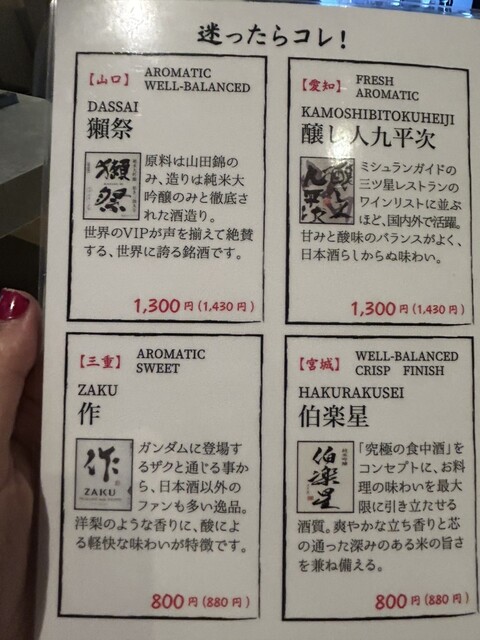 迷ったらコレ!
【山口】 AROMATIC
WELL-BALANCED
DASSAI
獺祭
獺祭
原料は山田錦の
み、造りは純米大
吟醸のみと徹底さ
れた酒造り。
世界のVIPが声を揃えて絶賛
する、世界に誇る銘酒です。
1,300円(1,430円)
【愛知】 FRESH
AROMATIC
KAMOSHIBITOKUHEIJI
醸し人九平次
醸し人
九平次
ミシュランガイドの
三ツ星レストランの
ワインリストに並ぶ
ほど、国内外で活躍。
甘みと酸味のバランスがよく、
日本酒らしからぬ味わい。
1,300円(1,430円)
【三重】 AROMATIC
SWEET
ZAKU
作
作
ZAKU
ガンダムに登場す
るザクと通じる事か
ら、日本酒以外の
ファンも多い逸品。
洋梨のような香りに、酸によ
る軽快な味わいが特徴です。
800円(880円)
【宮城】 WELL-BALANCED
CRISP FINISH
HAKURAKUSEI
伯楽星
伯楽星
「究極の食中酒」を
コンセプトに、お料
理の味わいを最大
限に引き立たせる
酒質。爽やかな立ち香りと芯
の通った深みのある米の旨さ
を兼ね備える。
800円(880円)